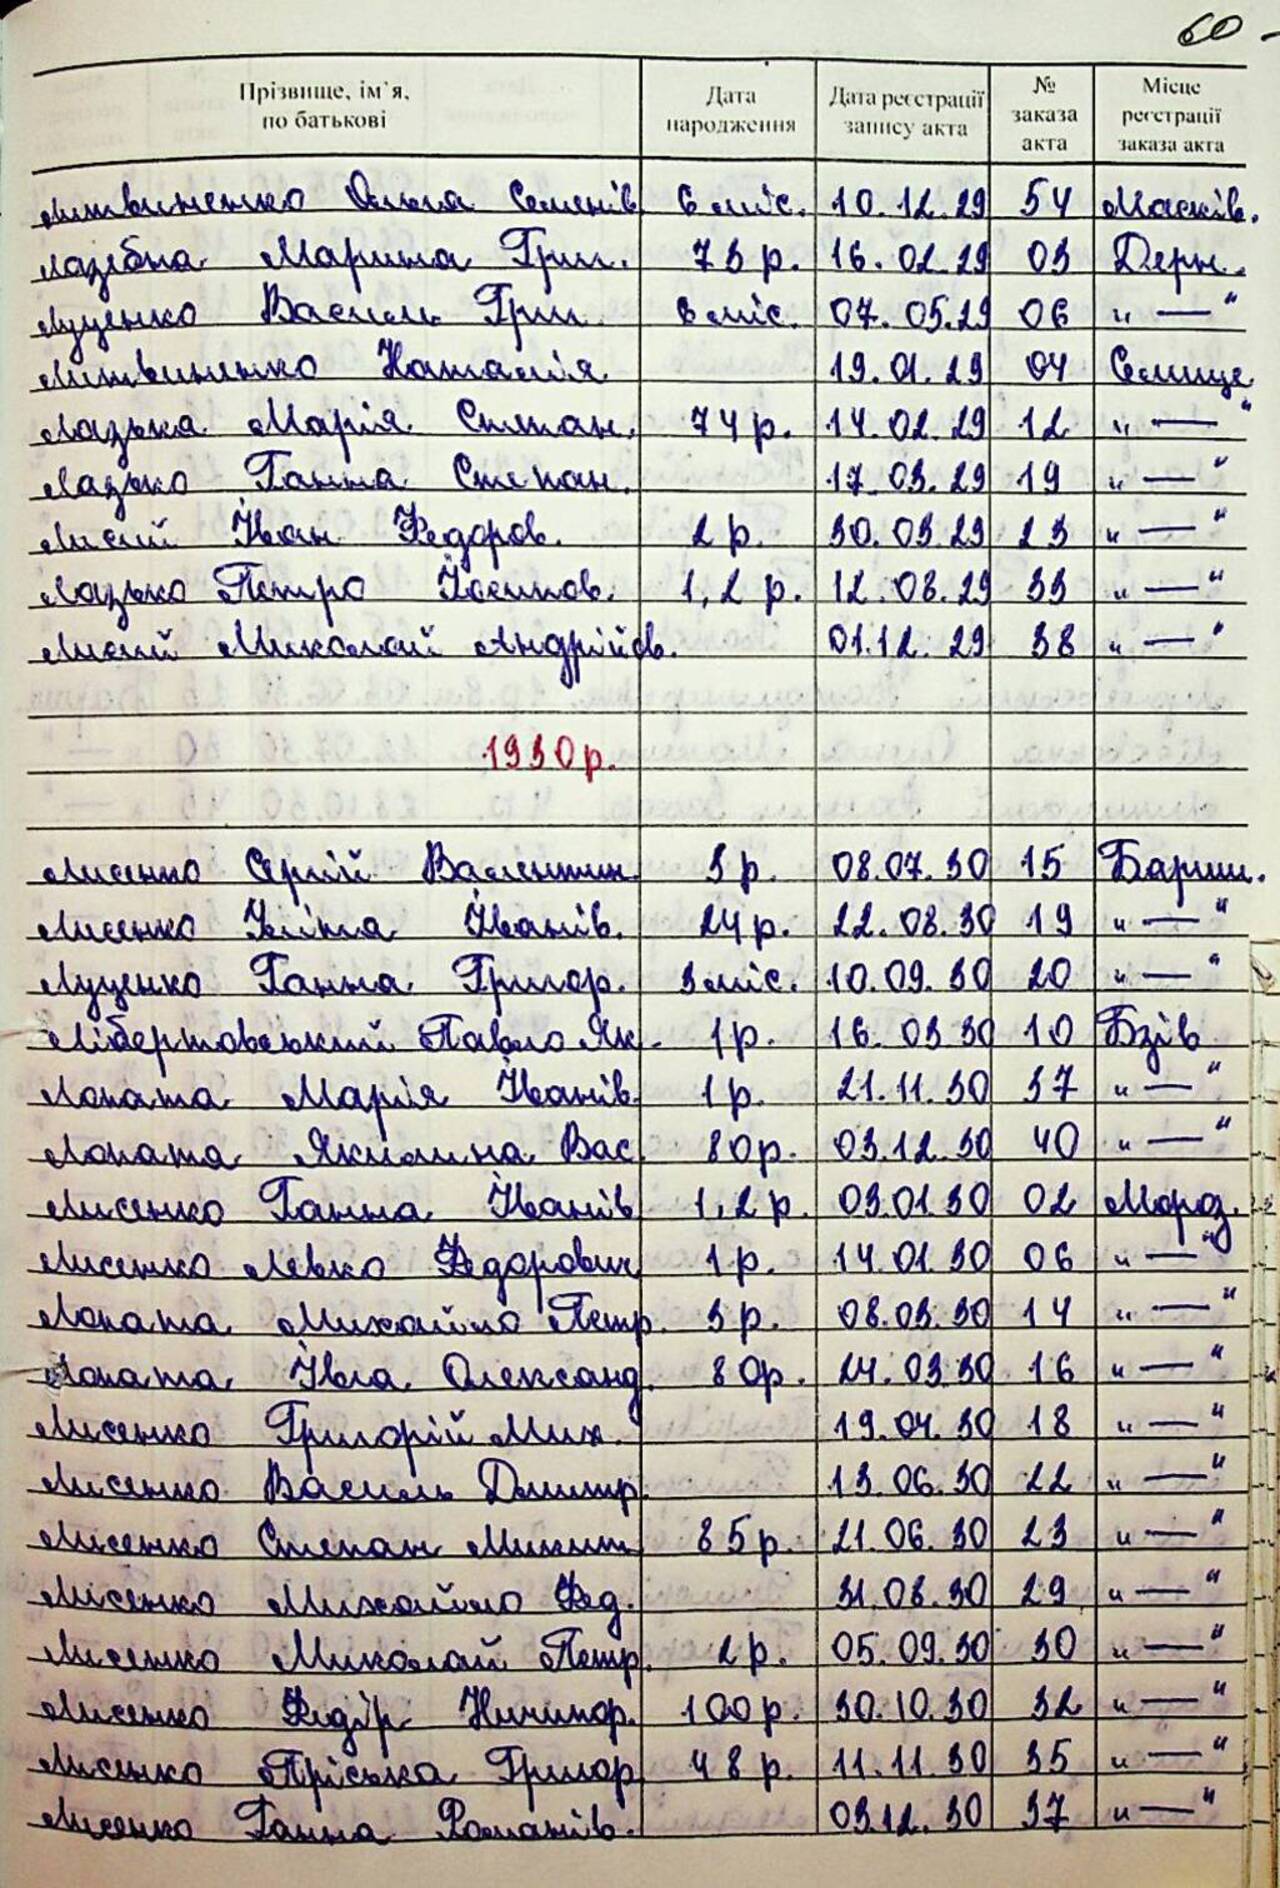 60
Прізвище, ім'я, по батькові | Дата народження | Дата реєстрації запису акта | № заказа акта | Місце реєстрації заказа акта
Литвиненко Ольга Семенів. 6 міс. 10.12.29 54 Масків.
Лазебна Марина Григ. 73 р. 16.02.29 03 Дерн.
Луценко Василь Григ. 6 міс. 07.05.29 06 "—"
Литвиненко Наталія 19.01.29 04 Селище
Лазька Марія Степан. 74 р. 14.02.29 12 "—"
Лазько Ганна Степан. 17.03.29 19 "—"
Лисий Іван Федоров. 2 р. 30.03.29 23 "—"
Лазько Петро Йосипов. 1,2 р. 12.08.29 33 "—"
Лисий Миколай Андрійов. 01.12.29 38 "—"
1930 р.
Лисенко Сергій Валентин. 3 р. 08.07.30 15 Бариш.
Лисенко Уліта Іванів. 24 р. 22.08.30 19 "—"
Луценко Ганна Григор. 3 міс. 10.09.30 20 "—"
Лібертовський Павло Як. 1 р. 16.03.30 10 Бзів
Лопата Марія Іванів. 1 р. 21.11.30 37 "—"
Лопата Якилина Вас. 80 р. 03.12.30 40 "—"
Лисенко Ганна Іванів 1,2 р. 03.01.30 02 Мороз.
Лисенко Левко Федорович 1 р. 14.01.30 06 "—"
Лопата Михайло Петр. 3 р. 08.03.30 14 "—"
Лопата Івга Олександ. 80 р. 24.03.30 16 "—"
Лисенко Григорій Мих. 19.04.30 18 "—"
Лисенко Василь Дмитр. 13.06.30 22 "—"
Лисенко Степан Микит. 85 р. 21.06.30 23 "—"
Лисенко Михайло Фед. 31.08.30 29 "—"
Лисенко Миколай Петр. 2 р. 05.09.30 30 "—"
Лисенко Федір Ничипор. 100 р. 30.10.30 32 "—"
Лисенко Пріська Григор. 48 р. 11.11.30 35 "—"
Лисенко Ганна Романів. 03.12.30 37 "—"